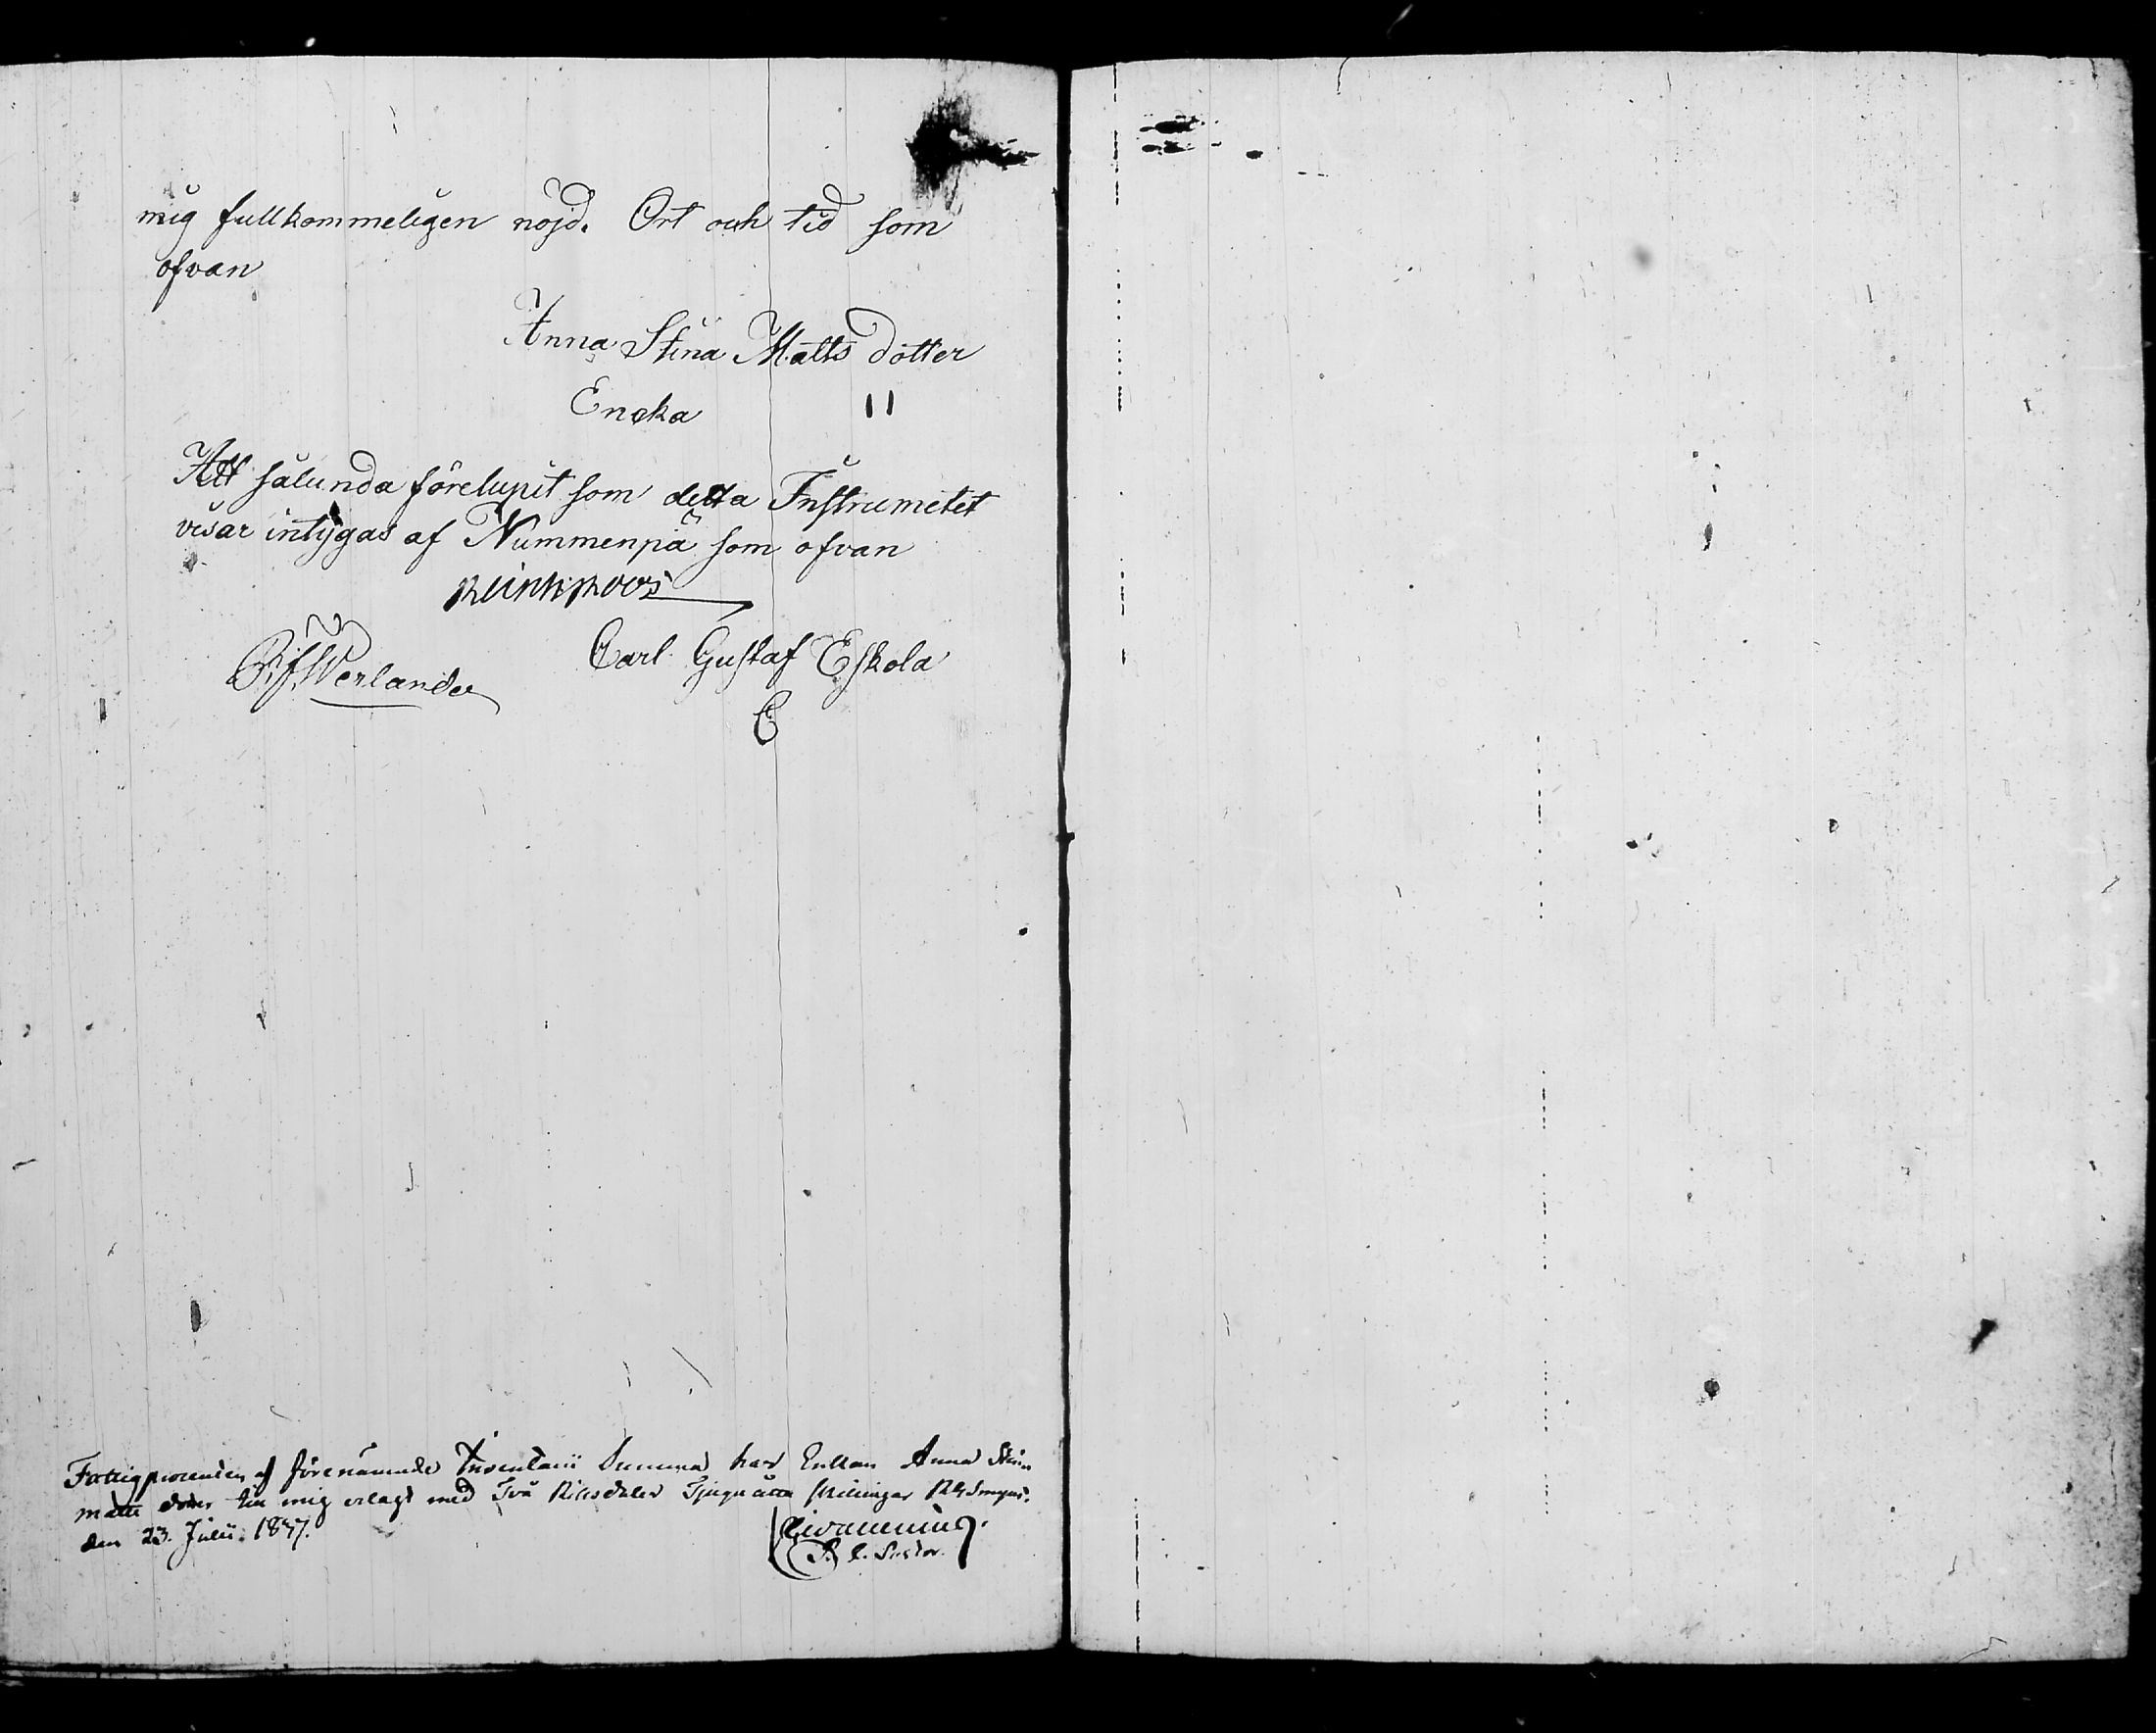 mig fullkommeligen nöjd. Ort och tid som
ofvan
Anna Stina Matts dotter
Encka 11
Att sålunda förelupit som detta Instrumetet
visar intygas af Nummenpä som ofvan
Carl Gustaf Eskola
R. f. Werlander
E
Fattigprocenten af förenämnde Inventarii Summa har Enkan Anna Stina
matts doter till mig erlagt med Två Riksdaler Tjuguåtta skillingar
den 23. Julii. 1837.